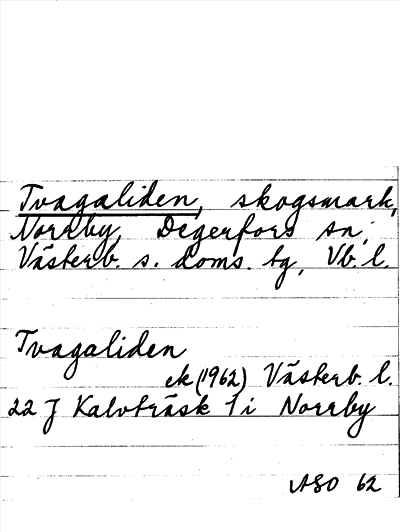 Tvagaliden, skogsmark,
Norrby, Degerfors sn,
Västerb. s. doms. tg, Vb. l.
Tvagaliden
ek (1962) Västerb. l.
22 J Kalvträsk 1 i Norrby
ASO 62